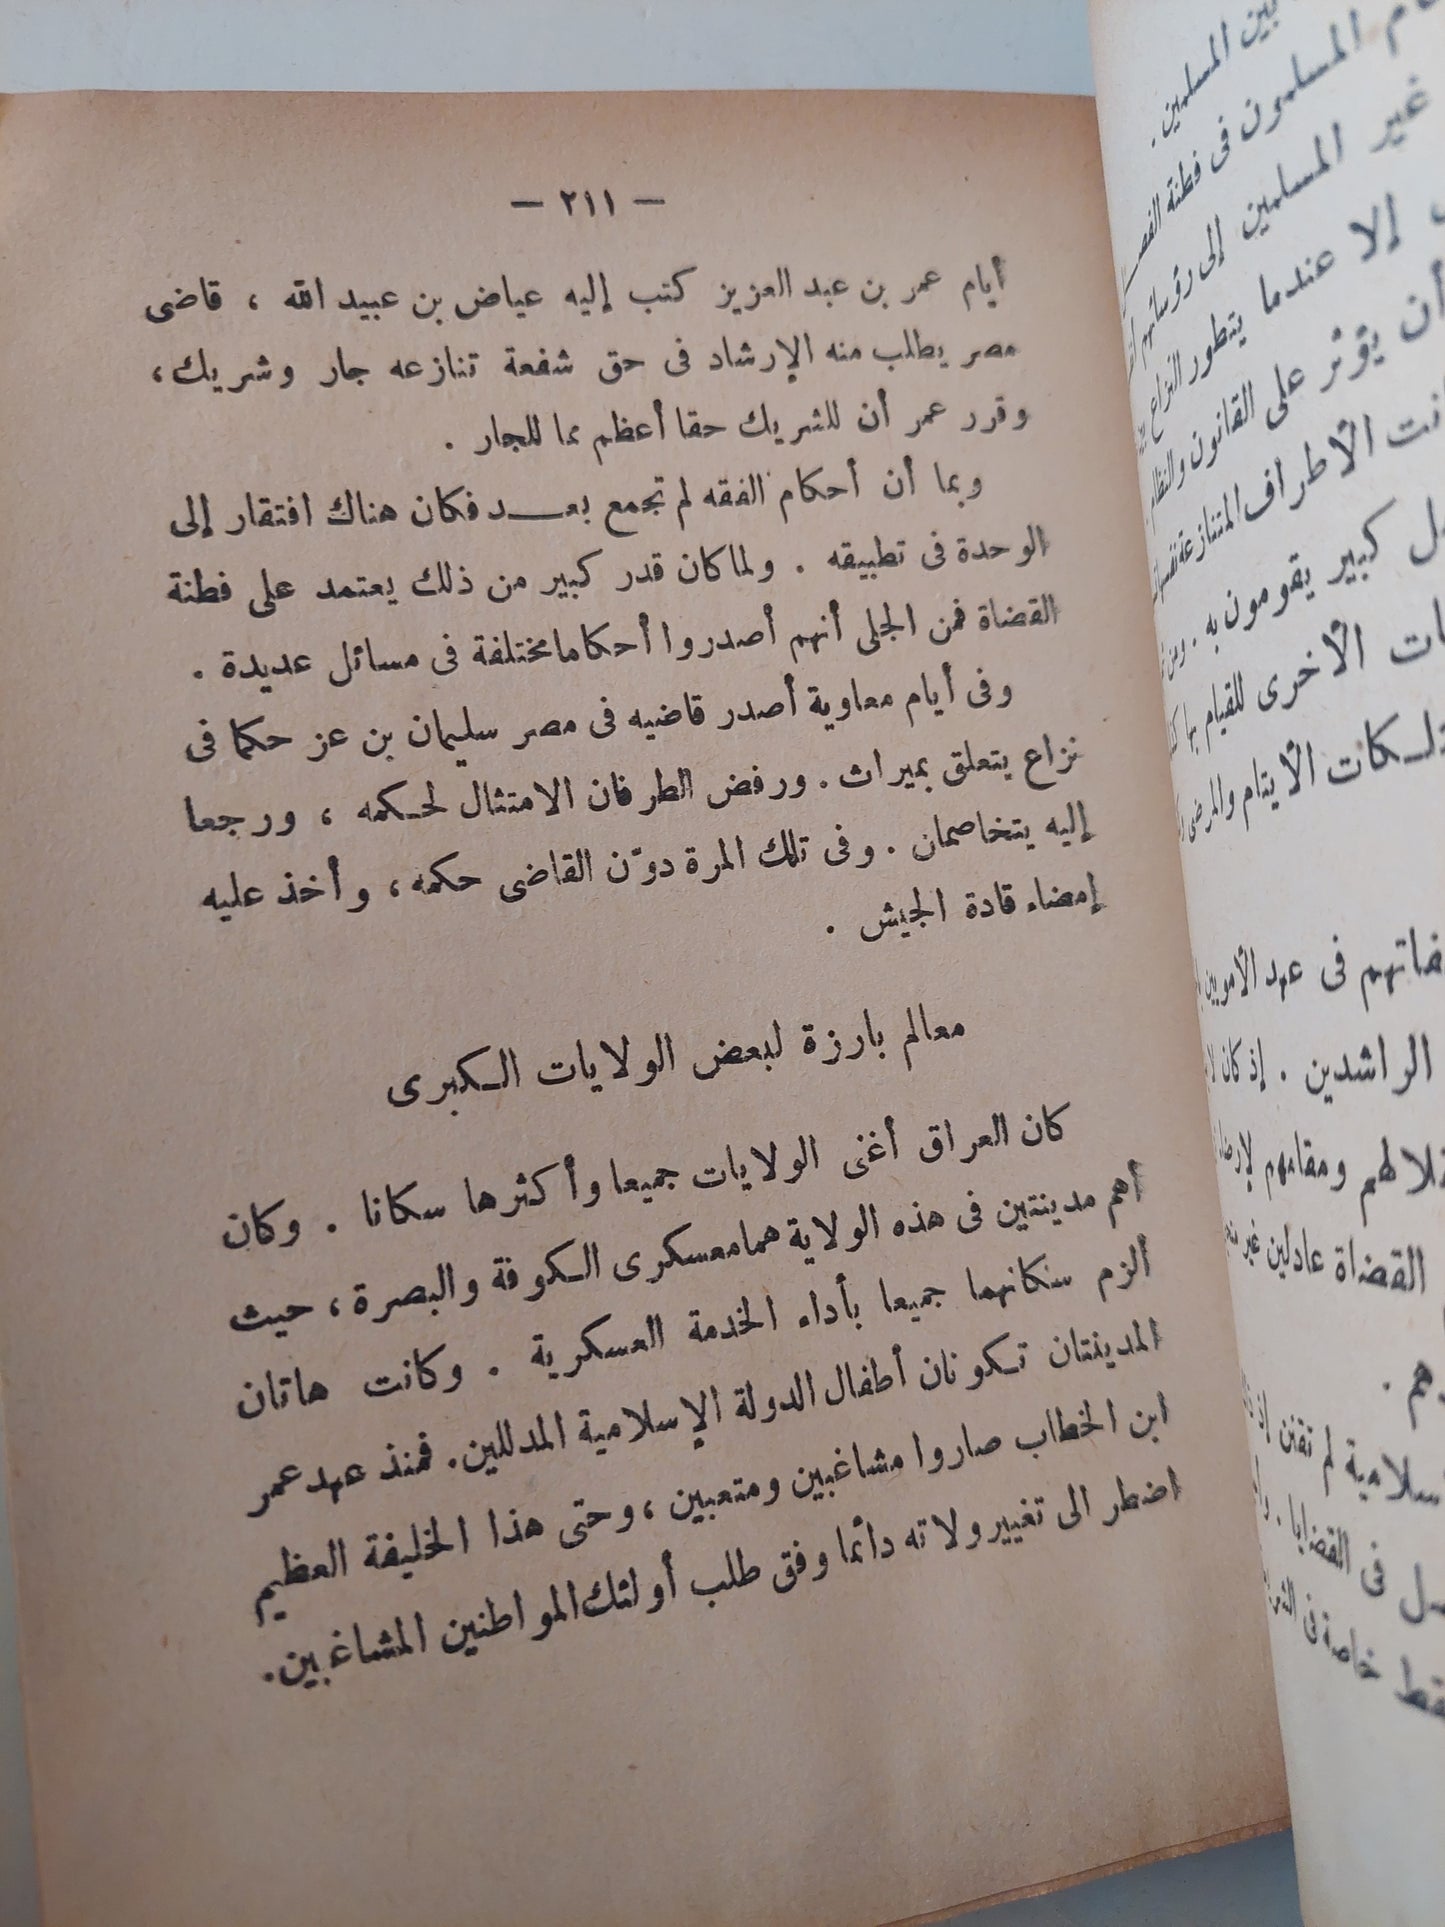 — ٢١١ —
أيام عمر بن عبد العزيز كتب إليه عياض بن عبيد الله ، قاضى
مصر يطلب منه الإرشاد فى حق شفعة تنازعه جار وشريك،
وقرر عمر أن للشريك حقا أعظم مما للجار .
وبما أن أحكام الفقه لم تجمع بعـــد فكان هناك افتقار إلى
الوحدة فى تطبيقه . ولما كان قدر كبير من ذلك يعتمد على فطنة
القضاة فمن الجلى أنهم أصدروا أحكاما مختلفة فى مسائل عديدة .
وفى أيام معاوية أصدر قاضيه فى مصر سليمان بن عز حكما فى
نزاع يتعلق بميراث . ورفض الطرفان الامتثال لحـكمه ، ورجعا
إليه يتخاصمان . وفى تلك المرة دوّن القاضى حكمه ، وأخذ عليه
إمضاء قادة الجيش .
معالم بارزة لبعض الولايات الـكبرى
كان العراق أغنى الولايات جميعا وأكثرها سكانا . وكان
أهم مدينتين فى هذه الولاية هما معسكرى الـكوفة والبصرة ، حيث
ألزم سكانهما جميعا بأداء الخدمة العسكرية . وكانت هاتان
المدينتان تـكونان أطفال الدولة الإسلامية المدللين. فمنذ عهد عمر
ابن الخطاب صاروا مشاغبين ومتعبين ، وحتى هذا الخليفة العظيم
اضطر الى تغيير ولاته دائما وفق طلب أولئك المواطنين المشاغبين.
بين المسلمين .
المسلمون فى فطنة
غير المسلمين إلى رؤسائهم
إلا عندما يتطور النزاع
أن يؤثر على القانون والنظام
الأطراف المتنازعة
كبير يقومون به .
الأخرى للقيام بها
الأيتام والمرضى
فى عهد الأمويين
الراشدين . إذ كان
ومقامهم
القضاة عادلين غير
لم تقنن إذ
فى القضايا .
خاصة فى